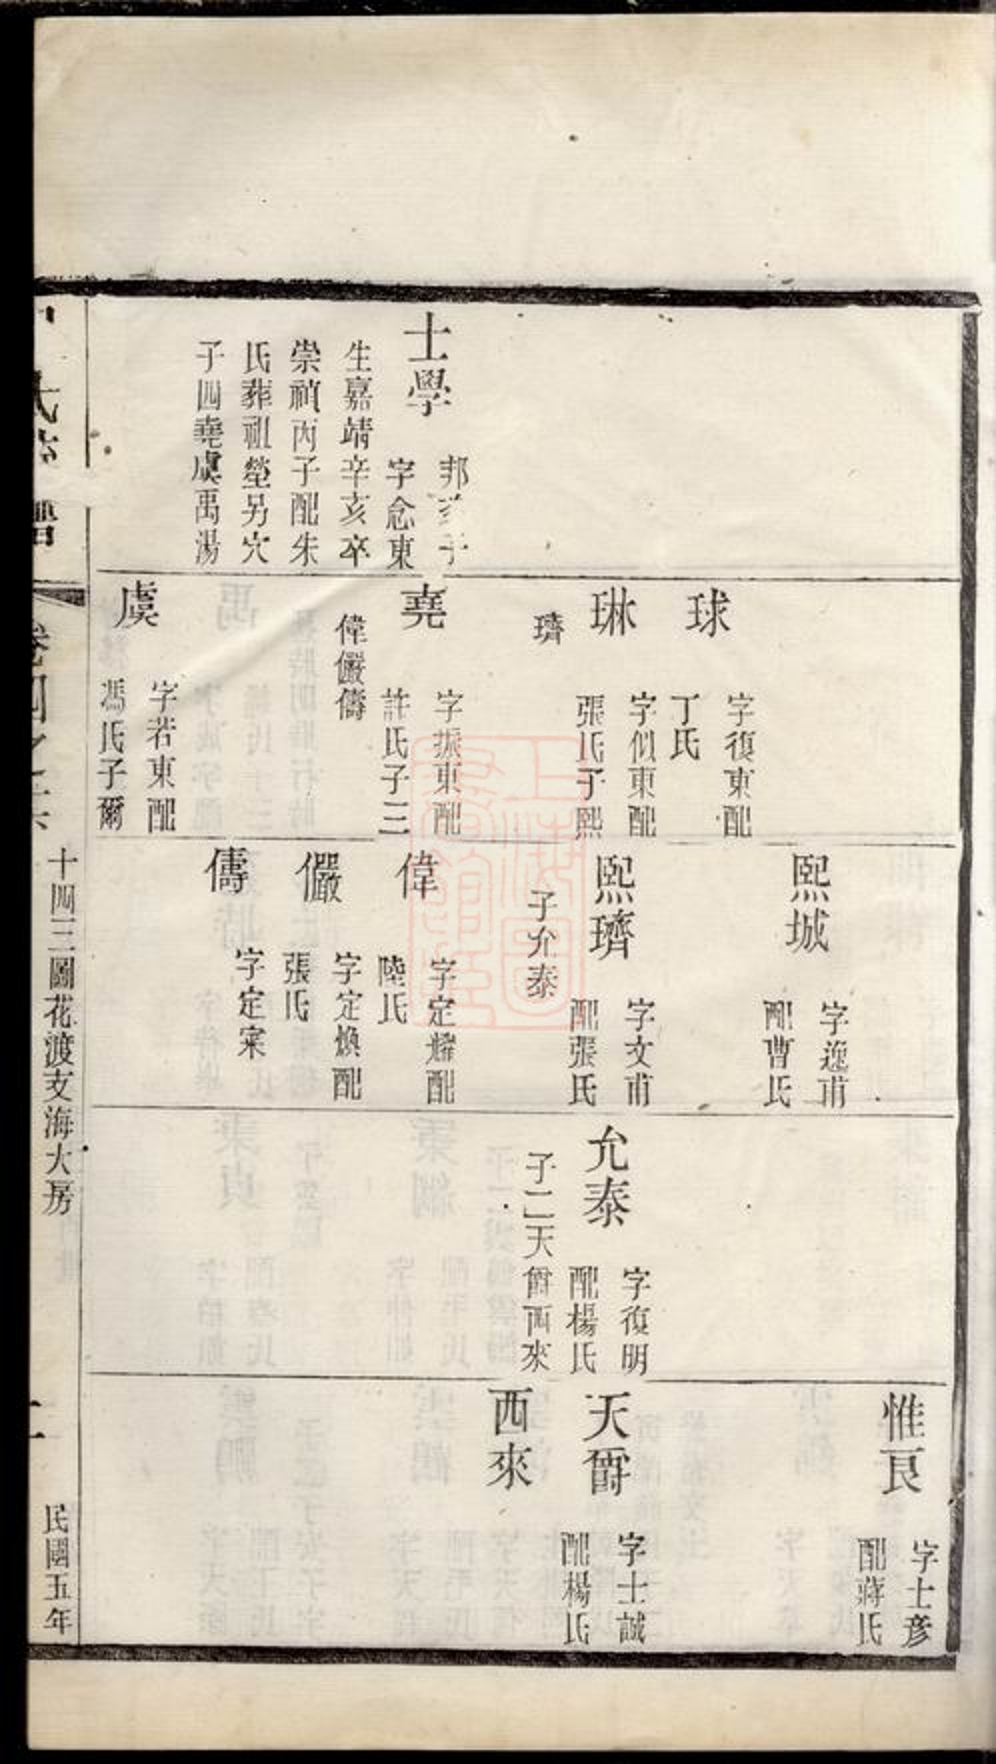 士學
字念東
生嘉靖辛亥卒
崇禎丙子配朱
氏葬祖塋另穴
子四堯虞禹湯
球
字復東配
丁氏
琳
字似東配
張氏子熙
璾
堯
字振東配
許氏子三
偉儼儔
虞
字若東配
馮氏子爾
熙城
字逸甫
配曹氏
熙璾
字文甫
配張氏
子允泰
偉
字定燿配
陸氏
儼
字定煥配
張氏
儔
字定寀
允泰
字復明
配楊氏
子二天爵西來
惟良
字士彥
配蔣氏
天爵
字士誠
配楊氏
西來
十四三圖花渡支海大房
民國五年